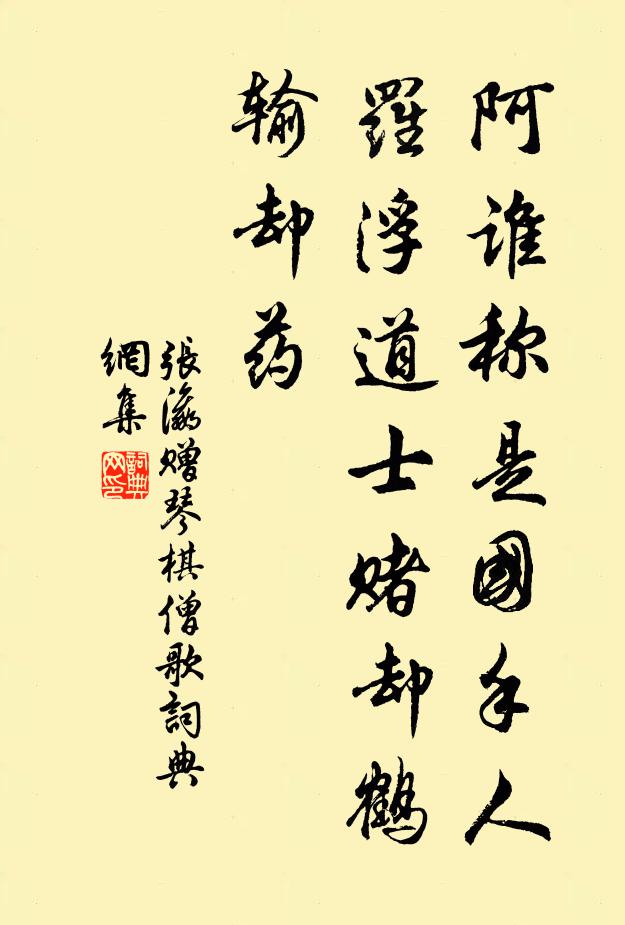 阿谁称是國手人
羅浮道士赌却鹤
输却药
張瀛赠琴棋僧歌詞典
網集
詞典
网印